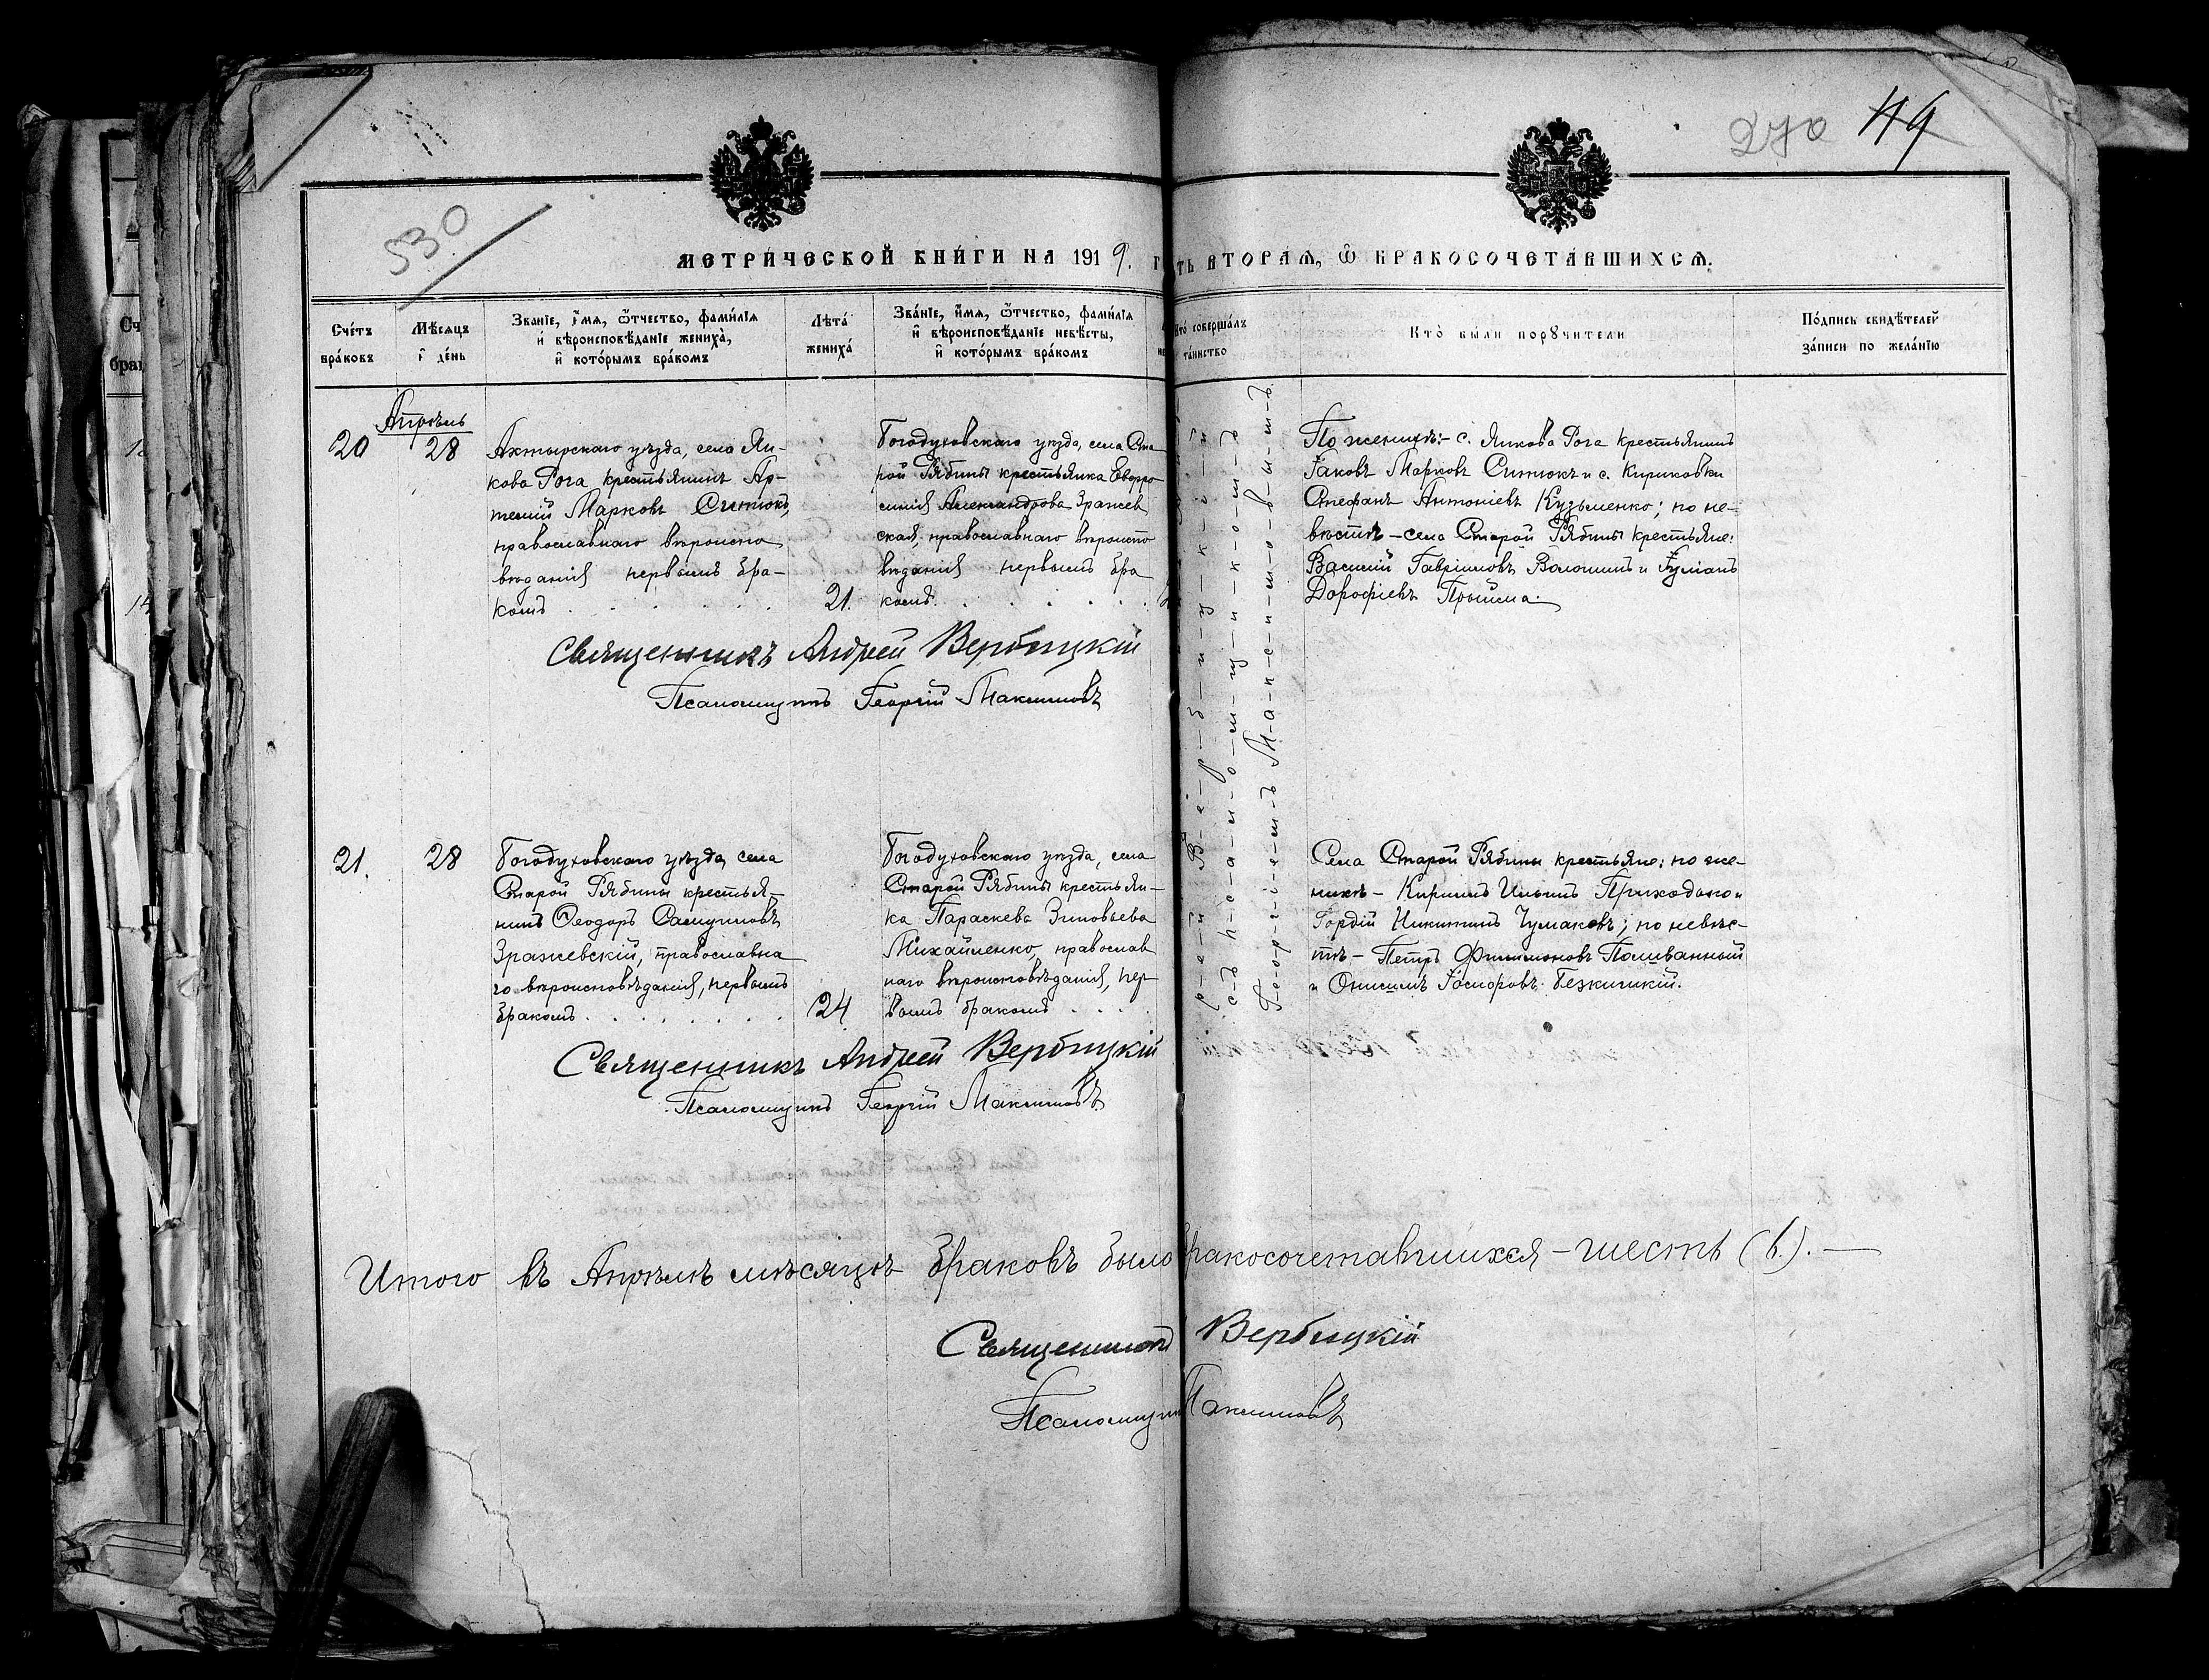 270 119
530
МЕТРИ́ЧЕСКОЙ КНИ́ГИ НА 1919.
ТЬ ВТОРА́Я, Ѡ БРАКОСОЧЕТА́ВШИХСЯ.
Сче́тъ бра́ковъ
Мѣ́сяцъ и҆ де́нь
Зва́нїе, и҆́мя, ѻ҆́тчество, фами́лїя и҆ вѣроисповѣ́данїе жениха̀, и҆ кото́рымъ бра́комъ
Лѣта̀ жениха̀
Зва́нїе, и҆́мя, ѻ҆́тчество, фами́лїя и҆ вѣроисповѣ́данїе невѣ́сты, и҆ кото́рымъ бра́комъ
Кто̀ соверша́лъ та́инство
Кто̀ бы́ли порꙋчи́тели
По́дпись свидѣ́телей за́писи по жела́нїю
Апрѣль
20
28
Ахтырскаго уѣзда, села Ян-
кова Рога крестьянинъ Ар-
темій Марковъ Ситюкъ,
православнаго вѣроиспо
вѣданія первымъ бра-
комъ
21.
Богодуховскаго уѣзда, села Ста
рой Рябины крестьянка Евфро
синія Александрова Зражев
ская, православнаго вѣроиспо
вѣданія первымъ бра
комъ
По женихѣ:- с. Янкова Рога крестьянинъ
Іаковъ Марковъ Ситюкъ и с. Кириковки
Стефанъ Антоніевъ Кузьменко; по не-
вѣстѣ - села Старой Рябины крестьяне:
Василій Гавріиловъ Волошинъ и Іуліанъ
Дорофіевъ Прыйма.
Священникъ Андрей Вербицкій
Псаломщикъ Георгій Максимовъ
р-е-й В-е-р-б-и-ц-к-і-й
съ п-с-а-л-о-м-щ-и-к-о-м-ъ
Г-е-о-р-г-і-е-м-ъ М-а-к-с-и-м-о-в-ы-м-ъ
21.
28
Богодуховскаго уѣзда, села
Старой Рябины крестья-
нинъ Ѳеодоръ Самуиловъ
Зражевскій, православна
го вѣроисповѣданія, первымъ
бракомъ
24
Богодуховскаго уѣзда, села
Старой Рябины крестьян-
ка Параскева Зиновьева
Михайленко, православ
наго вѣроисповѣданія, пер-
вымъ бракомъ
Села Старой Рябины крестьяне: по же-
нихѣ - Кириллъ Ильинъ Приходько и
Гордій Никитинъ Чумаковъ; по невѣс-
тѣ - Петръ Филимоновъ Поливанный
и Онисимъ Іосифовъ Безкишкій.
Священникъ Андрей Вербицкій
Псаломщикъ Георгій Максимовъ
Итого въ Апрѣлѣ мѣсяцѣ браковъ было бракосочетавшихся - шесть (6). —
Священникъ Вербицкій
Псаломщикъ Максимовъ